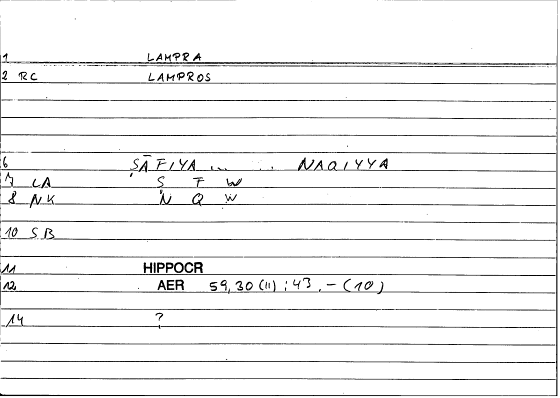 1 LAMPRA
2 RC LAMPROS
6 ṢĀFIYA ... .. NAQIYYA
7 LA Ṣ F W
8 NK N Q W
10 SB
11 HIPPOCR
12 AER 59,30 (11) ; 43, - (10)
14 ?